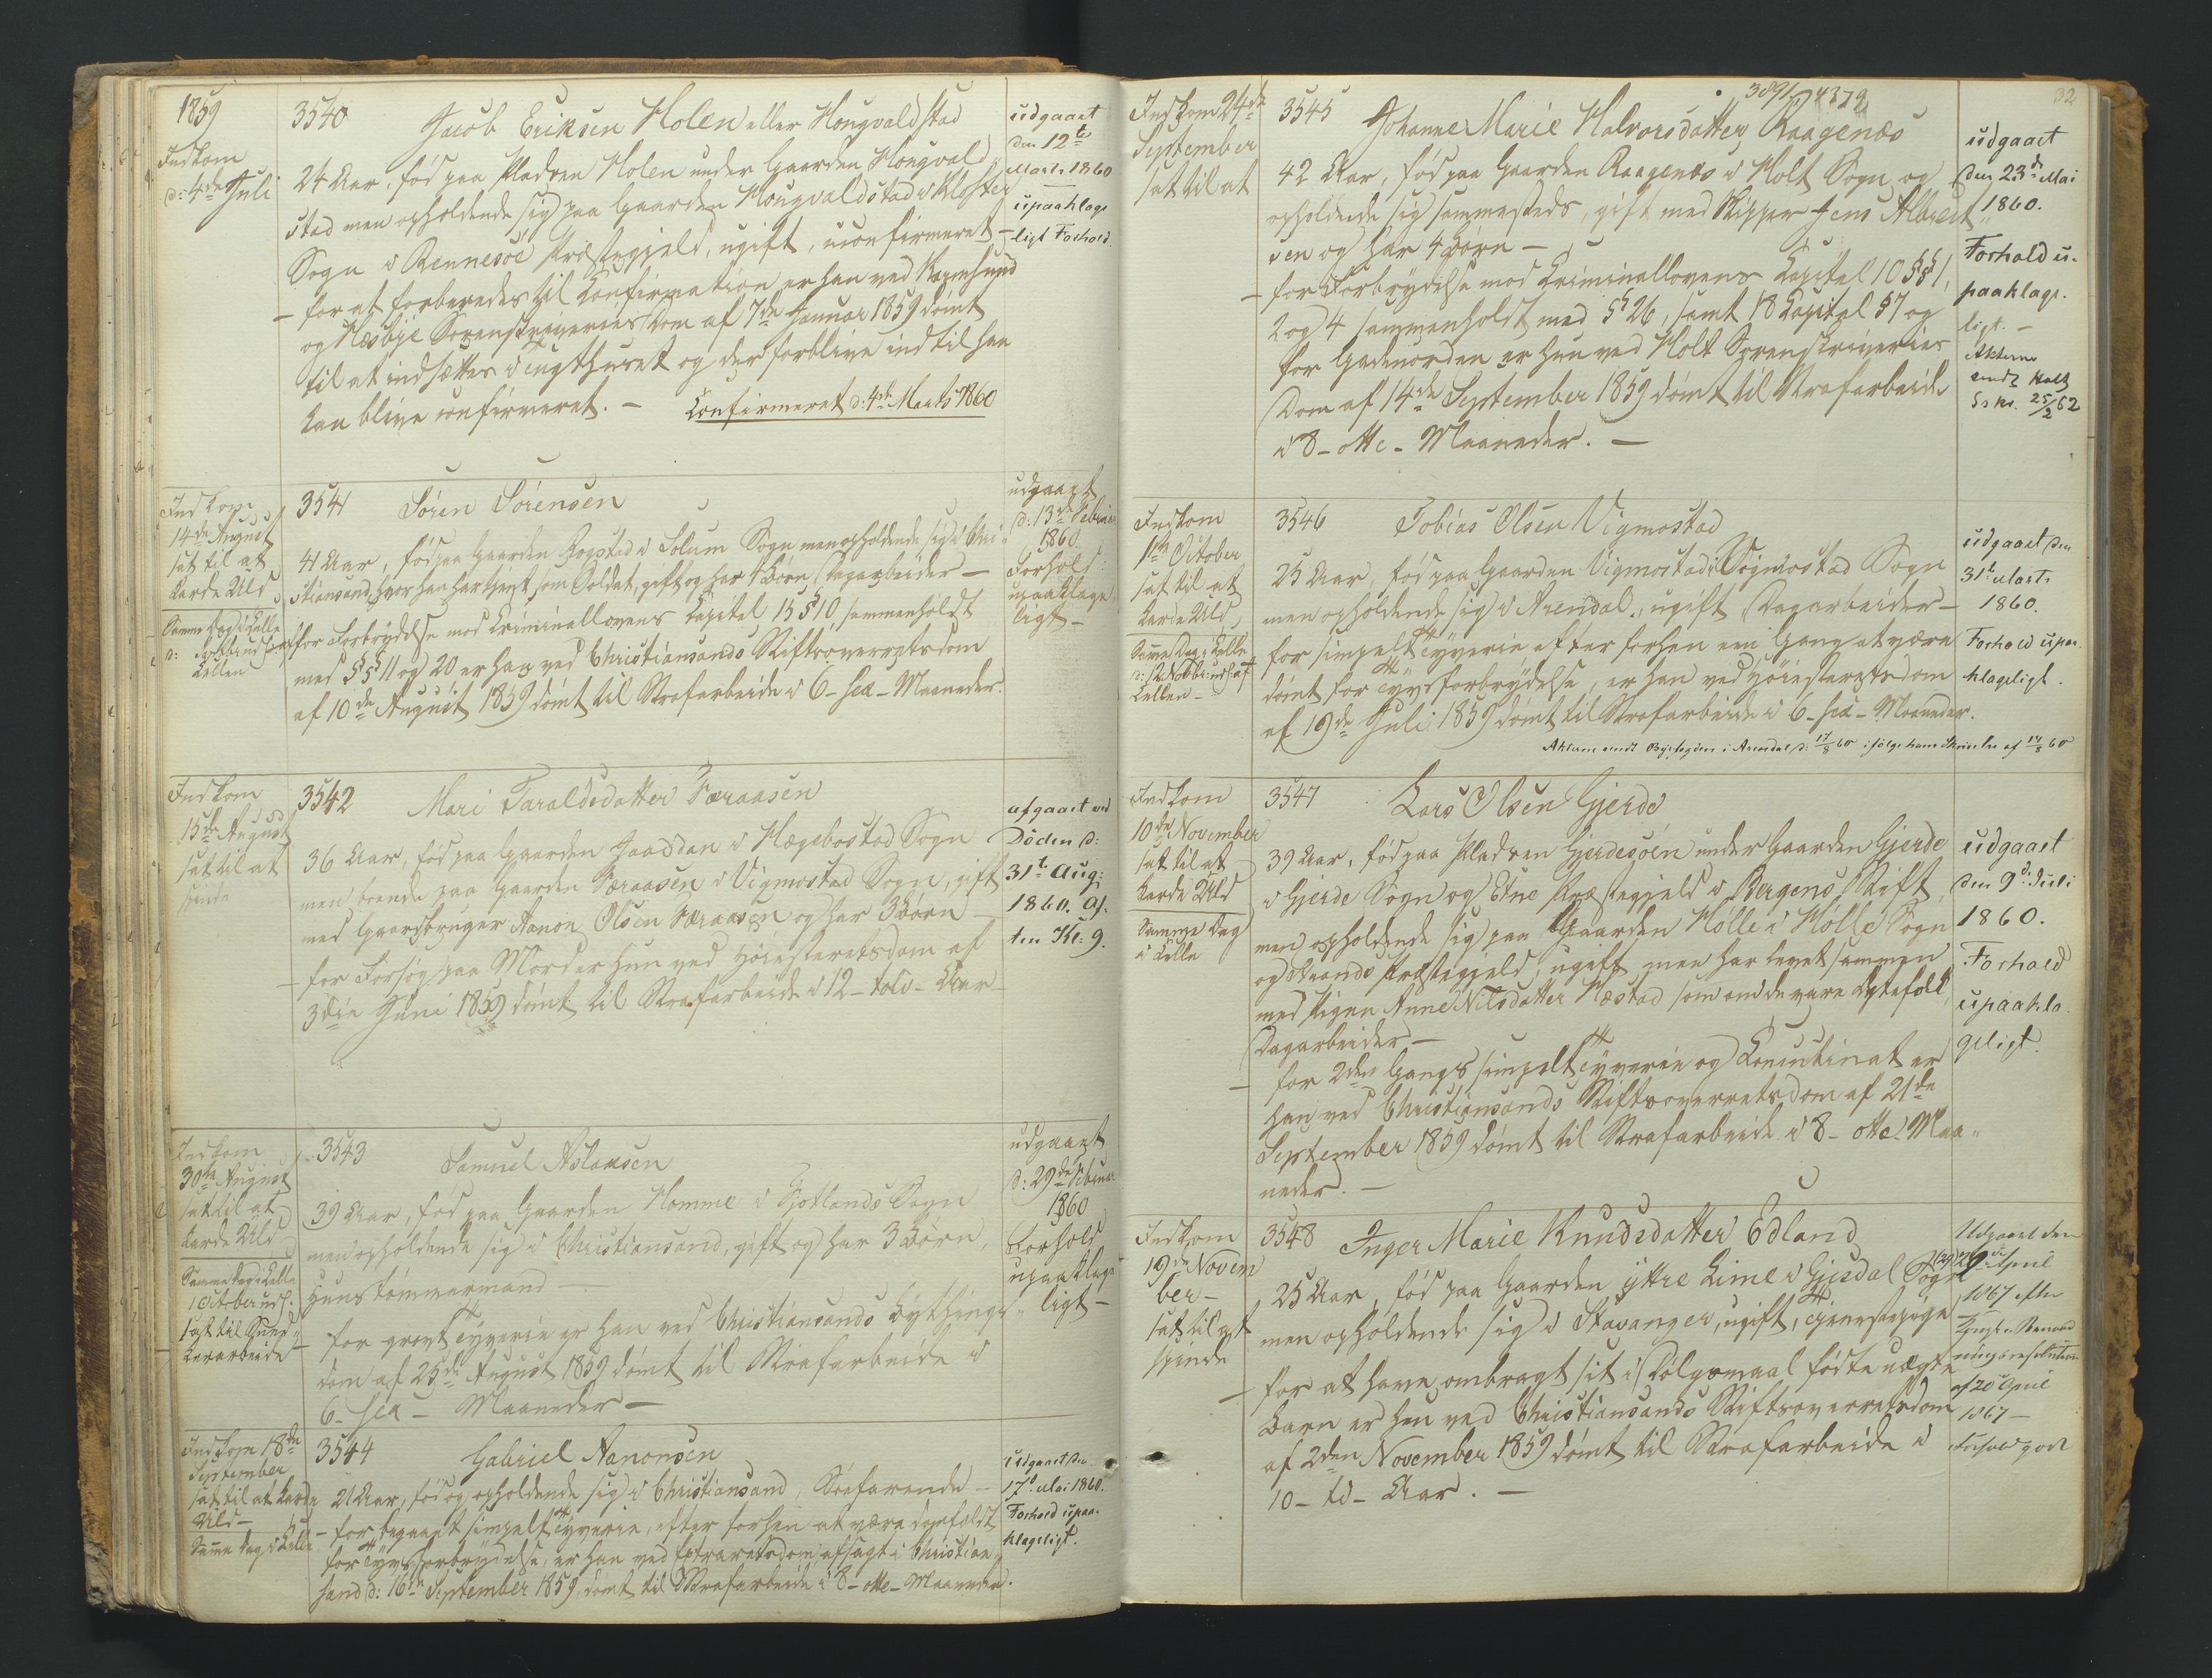 1859
Indkom
d: 4de Juli
3540 Jacob Eriksen Holen eller Hougvaldstad
24 Aar, fød paa Pladsen Holen under Gaarden Hougvald
stad men opholdende sig paa Gaarden Hougvaldstad i Kloster
Sogn i Rennesöe Præstegjeld, ugift, uconfirmeret –
– for at forberedes til Confirmation er han ved
og Hæsbye Sorenskriveries Dom af 7de Januar 1859 dømt
til at indsættes i Tugthuset og der forblive indtil han
kan blive confirmeret. – Confirmeret d: 4de Marts 1860
udgaaet
den 12te
Marts 1860
upaaklage
ligt Forhold.
Indkom
14de August
sat til at
karde Uld
Samme Dag i Celle
d:
Cellen
3541 Søren Sørensen
41 Aar, fød paa Gaarden Rogstad i Solum Sogn men opholdende sig i Chri
stiansand, hvor han har tjent som Soldat, gift og har 1 Børn, Dagarbeider –
for Forbrydelse mod Criminallovens Capitel 15 § 10, sammenholdt
med §§ 11 og 20 er han ved Christiansands Stiftsoverretsdom
af 10de August 1859 dømt til Strafarbeide i 6 – sex – Maaneder.
udgaaet
d: 13de Februar
1860
Forhold
upaaklage
ligt –
Indkom
15de August
sat til at
spinde
3542 Mari Taraldsdatter Færaasen
36 Aar, fød paa Gaarden Gaaddan i Hægebostad Sogn
men boende paa Gaarden Færaasen i Vigmostad Sogn, gift
med Gaardbruger Aanon Olsen Færaasen og har 3 Børn –
– for Forsøg paa Mord er hun ved Höiesteretsdom af
3die Juni 1859 dømt til Strafarbeide i 12 – tolv – Aar –
afgaaet ved
Döden d:
31t Aug:
1860. Af-
ten Kl: 9.
Indkom
30te August
sat til at
karde Uld
Samme Dag i Celle
1 October ud
sat til Sned-
kerarbeide
3543 Samuel Aslaksen
39 Aar, fød paa Gaarden Homme i Fjotlands Sogn
men opholdende sig i Christiansand, gift og har 3 Børn,
Huustömmermand –
– for grovt Tyverie er han ved Christiansands Bythings-
dom af 25de August 1859 dømt til Strafarbeide i
6 – sex – Maaneder –
udgaaet
d: 29de Februar
1860
Forhold
upaaklage
ligt –
Indkom 18de
September
sat til at karde
Uld –
Samme Dag i Celle
3544 Gabriel Aanonsen
21 Aar, fød og opholdende sig i Christiansand, Söefarende –
– for begaaet simpelt Tyverie, efter forhen at være domfældt
for Tyvsforbrydelse, er han ved Extraretsdom afsagt i Christian-
sand d: 16de September 1859, dømt til Strafarbeide i 8 – otte – Maaneder.
udgaaet den
17d Mai 1860.
Forhold upaa-
klageligt.
32
Indkom 24de
September
sat til at
3891 4379
3545 Johanne Marie Halvorsdatter Raagenæs
42 Aar, fød paa Gaarden Raagenæs i Holt Sogn og
opholdende sig sammesteds, gift med Skipper Jens Albrect-
sen og har 4 Børn –
– for Forbrydelse mod Criminallovens Capitel 10 §§ 1,
2 og 4 sammenholdt med § 26, samt 18 Capitel § 7 og
for Gadeuorden er hun ved Holt Sorenskriveries
Dom af 14de September 1859 dømt til Strafarbeide
i 8 – otte – Maaneder. –
udgaaet
den 23de Mai
1860.
Forhold u-
paaklage-
ligt. –
Akterne
sendt Holt
Sskr. 25/2 62
Indkom
1ste October
sat til at
karde Uld
Samme Dag i Celle
d: 12 Novbr: ud af
Cellen –
3546 Tobias Olsen Vigmostad
25 Aar, fød paa Gaarden Vigmostad i Vigmostad Sogn
men opholdende sig i Arendal, ugift, Dagarbeider –
for simpelt Tyverie efter forhen een Gang at være
dømt for Tyvsforbrydelse, er han ved Höiesteretsdom
af 19de Juli 1859 dømt til Strafarbeide i 6 – sex – Maaneder.
Akterne sendt Byfogden i Arendal d: 17/8 60 ifølge hans Skrivelse af 14/8 60
udgaaet den
31t Marts
1860.
Forhold upaa-
klageligt.
Indkom
10de November
sat til at
karde Uld
Samme Dag
i Celle
3547 Lars Olsen Gjerde
39 Aar, fød paa Pladsen Gjerdesöen under Gaarden Gjerde
i Gjerde Sogn og Etne Præstegjeld i Bergens Stift,
men opholdende sig paa Gaarden Hölle i Hölle Sogn
og Strands Præstegjeld, ugift men har levet sammen
med Pigen Anne Nilsdatter Næstad som om de vare Ægtefolk,
Dagarbeider –
– for 2den Gangs simpelt Tyverie og Concubinat er
han ved Christiansands Stiftsoverretsdom af 21de
September 1859 dømt til Strafarbeide i 8 – otte Maa-
neder. –
udgaaet
den 9d. Juli
1860.
Forhold
upaakla-
geligt.
Indkom
19de Novem
ber –
sat til at
spinde
3548 Inger Marie Knudsdatter Edland
25 Aar, fød paa Gaarden yttre Lime i Gjesdal Sogn
men opholdende sig i Stavanger, ugift, Tjenestepige
– for at have ombragt sit i Dølgsmaal fødte uægte
Barn er hun ved Christiansands Stiftsoverretsdom
af 2den November 1859 dømt til Strafarbeide i
10 – ti – Aar. –
Udgaaet den
April
1867 efter
Kongl. Benaad-
ningsresolution
af 20 April
1867 –
Forhold godt